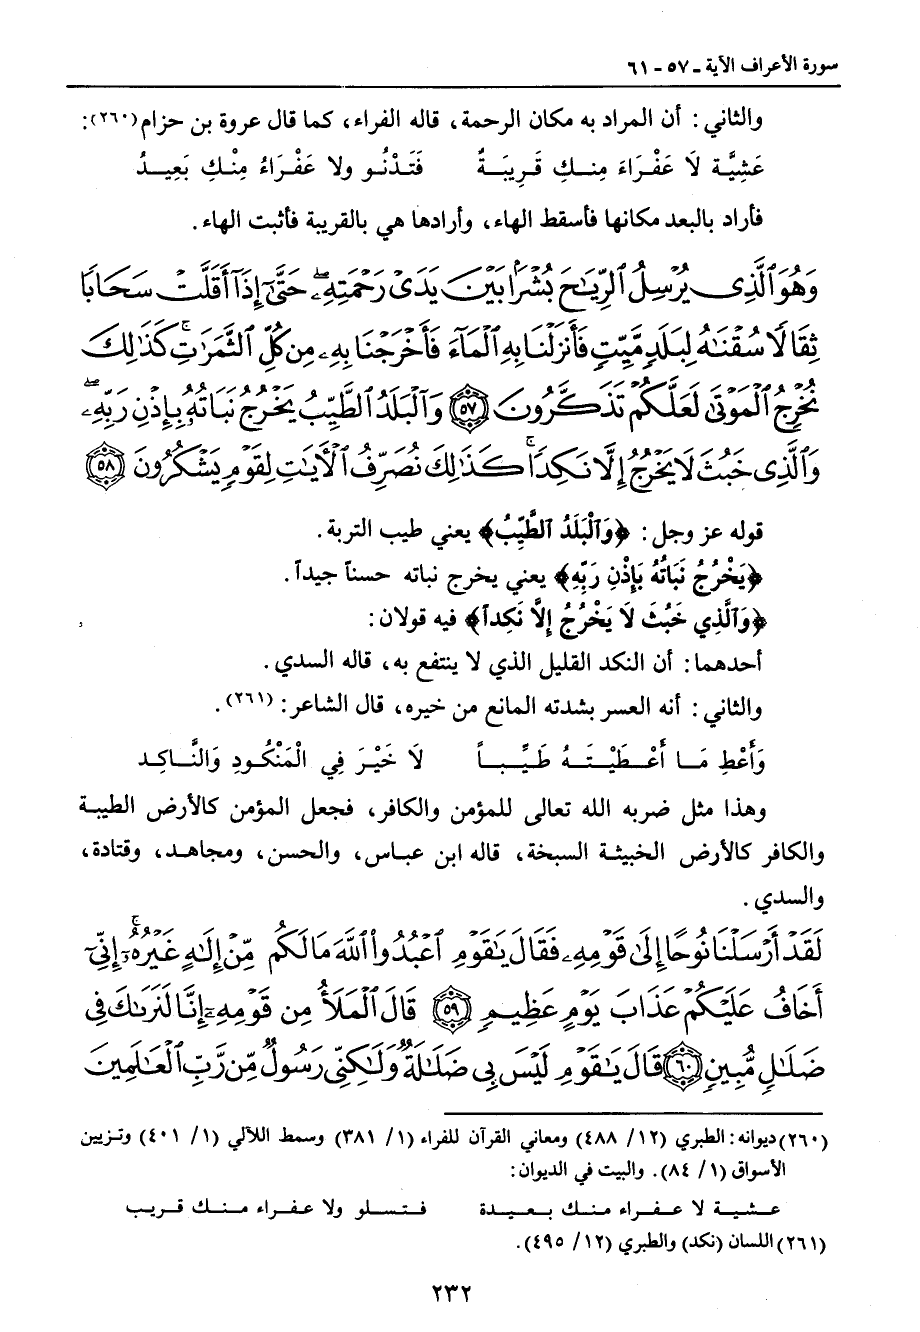 سورة الأعراف الآية - ٥٧ - ٦١
والثاني: أن المراد به مكان الرحمة، قاله الفراء، كما قال عروة بن حزام(٢٦٠):
عَشِيَّة لَا عَفْرَاءَ مِنكِ قَرِيبَةٌ فَتَدْنُو ولا عَفْرَاءُ مِنْكِ بَعِيدُ
فأراد بالبعد مكانها فأسقط الهاء، وأرادها هي بالقريبة فأثبت الهاء.
وَهُوَ ٱلَّذِى يُرْسِلُ ٱلرِّيَٰحَ بُشْرًۢا بَيْنَ يَدَىْ رَحْمَتِهِۦۖ حَتَّىٰٓ إِذَآ أَقَلَّتْ سَحَابًا
ثِقَالًا سُقْنَٰهُ لِبَلَدٍ مَّيِّتٍ فَأَنزَلْنَا بِهِ ٱلْمَآءَ فَأَخْرَجْنَا بِهِۦ مِن كُلِّ ٱلثَّمَرَٰتِۚ كَذَٰلِكَ
نُخْرِجُ ٱلْمَوْتَىٰ لَعَلَّكُمْ تَذَكَّرُونَ ٥٧ وَٱلْبَلَدُ ٱلطَّيِّبُ يَخْرُجُ نَبَاتُهُۥ بِإِذْنِ رَبِّهِۦۖ
وَٱلَّذِى خَبُثَ لَا يَخْرُجُ إِلَّا نَكِدًاۚ كَذَٰلِكَ نُصَرِّفُ ٱلْءَايَٰتِ لِقَوْمٍ يَشْكُرُونَ ٥٨
قوله عز وجل: ﴿وَٱلْبَلَدُ ٱلطَّيِّبُ﴾ يعني طيب التربة.
﴿يَخْرُجُ نَبَاتُهُ بِإِذْنِ رَبِّهِ﴾ يعني يخرج نباته حسناً جيداً.
﴿وَٱلَّذِي خَبُثَ لَا يَخْرُجُ إِلَّا نَكِداً﴾ فيه قولان:
أحدهما: أن النكد القليل الذي لا ينتفع به، قاله السدي.
والثاني: أنه العسر بشدته المانع من خيره، قال الشاعر:(٢٦١).
وَأَعْطِ مَا أَعْطَيْتَهُ طَيِّباً لَا خَيْرَ فِي الْمَنْكُودِ وَالنَّاكِد
وهذا مثل ضربه الله تعالى للمؤمن والكافر، فجعل المؤمن كالأرض الطيبة
والكافر كالأرض الخبيثة السبخة، قاله ابن عباس، والحسن، ومجاهد، وقتادة،
والسدي.
لَقَدْ أَرْسَلْنَا نُوحًا إِلَىٰ قَوْمِهِۦ فَقَالَ يَٰقَوْمِ ٱعْبُدُوا۟ ٱللَّهَ مَالَكُم مِّنْ إِلَٰهٍ غَيْرُهُۥٓۚ إِنِّىٓ
أَخَافُ عَلَيْكُمْ عَذَابَ يَوْمٍ عَظِيمٍ ٥٩ قَالَ ٱلْمَلَأُ مِن قَوْمِهِۦٓ إِنَّا لَنَرَىٰكَ فِى
ضَلَٰلٍ مُّبِينٍ ٦٠ قَالَ يَٰقَوْمِ لَيْسَ بِى ضَلَٰلَةٌ وَلَٰكِنِّى رَسُولٌ مِّن رَّبِّ ٱلْعَٰلَمِينَ
(٢٦٠) ديوانه: الطبري (١٢/ ٤٨٨) ومعاني القرآن للفراء (١/ ٣٨١) وسمط اللآلي (١/ ٤٠١) وتزيين
الأسواق (١/ ٨٤). والبيت في الديوان:
عشية لا عفراء منك بعيدة فتسلو ولا عفراء منك قريب
(٢٦١) اللسان (نكد) والطبري (١٢/ ٤٩٥).
٢٣٢